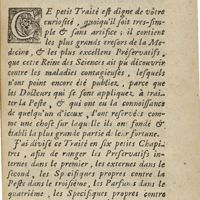 CE petit Traité est digne de vôtre
curiosité, quoiqu'il soit tres-sim-
ple & sans artifice ; il contient
les plus grands tresors de la Me-
decine, & les plus excellens Préservatifs,
que cette Reine des Sciences ait pû découvrir
contre les maladies contagieuses, lesquels
n'ont point encore été publiez, parce que
les Docteurs qui se sont appliquez à trai-
ter la Peste, & qui ont eu la connoissance
de quelqu'un d'iceux, l'ont reservée com-
me une chose sur laquelle ils ont fondé &
établi la plus grande partie de leur fortune.
J'ai divisé ce Traité en six petits Chapi-
tres, afin de ranger les Preservatifs in-
ternes dans le premier, les externes dans le
second, les Specifiques propres contre la
Peste dans le troisiéme, les Parfums dans le
quatriéme, les Specifiques propres contre